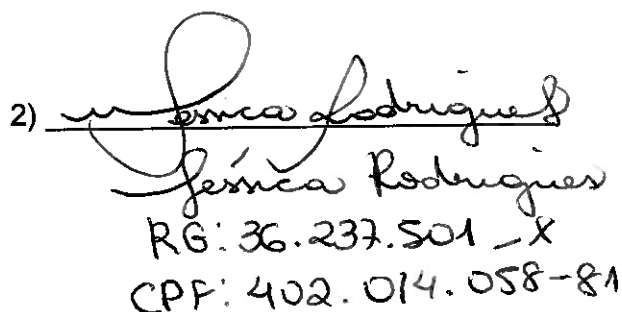 2) Jessica Rodrigues
Jéssica Rodrigues
RG: 36.237.501-X
CPF: 402.014.058-81